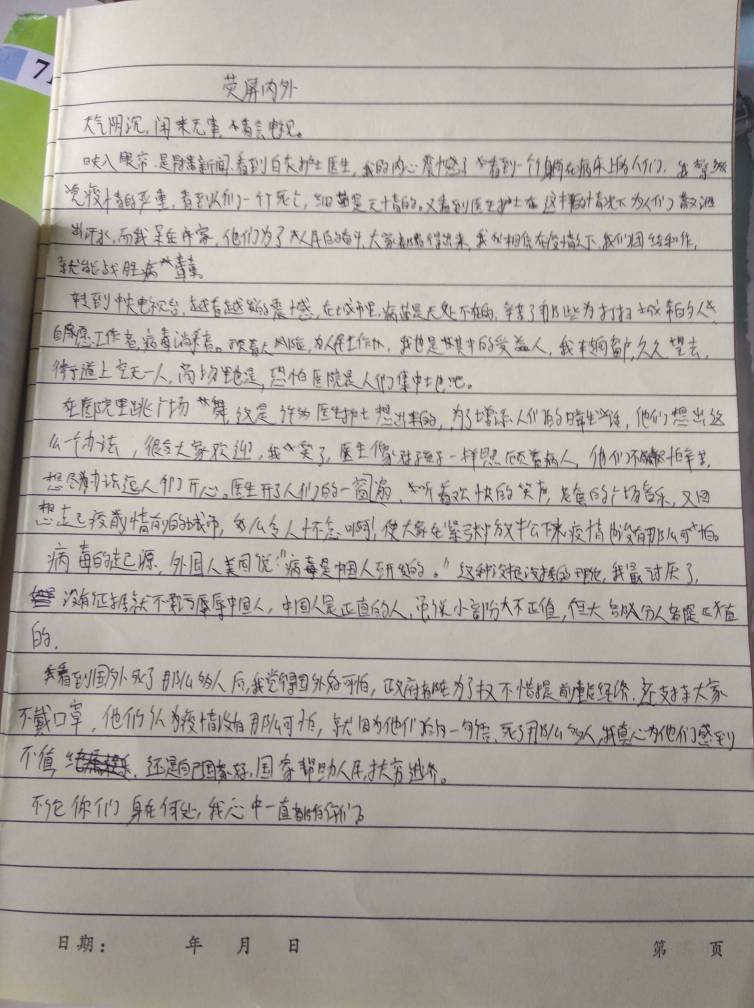 71
荧屏内外
天气阴沉,闲来无事,看会电视。
映入眼帘,是新闻,看到白衣护士医生,我的内心震憾了看到一个个躺在病床上的人们,我
疫情的严重,看到人们一个个死亡,病毒是无情的,又看到医生护士在这样的情况下为人们
汗水,而我呆在家,他们为了人民的,大家都看得出来,我相信在疫情之下,我们团结和作,
就能战胜病毒
转到中央电视台,越看越的震憾,在城市里,病毒是无处不在的,辛苦了那些为打扫城市的人
自愿工作者,病毒消毒者。顶着风险,为人民工作,我也是其中的受益人,我转向窗户,久久望去,
街道上空无一人,商场里也是,恐怕医院是人们集中地吧。
在医院里跳广场舞,这是许多医生护士想出来的,为了增添人们的日常生活,他们想出这
么一个办法,很受大家欢迎,我笑了,医生像孩子一样照顾着病人,他们不怕辛苦,
想尽着办法逗人们开心。医生开了人们的一窗,听着欢快的笑声,广场音乐,又回
想起疫情前的城市,多么令人怀念啊,使大家在紧张中放松下来疫情没有那么可怕。
病毒的起源,外国人美国说:"病毒是中国人研发的。"这种没根没据的,我最讨厌了,
没有证据就不要污辱中国人,中国人是正直的人,虽说小部分人不正值,但大部分人都是正直
的,
看到国外死了那么多人后,我觉得国外好可怕,政府为了权不惜提前重启经济,还支持大家
不戴口罩,他们认为疫情没有那么可怕,就因为他们的一句话,死了那么多人,我真心为他们感到
不值,还是自己国家好,国家帮助人民,扶穷
不论你们身在何处,我心中一直都有你们
日期: 年 月 日
第 页